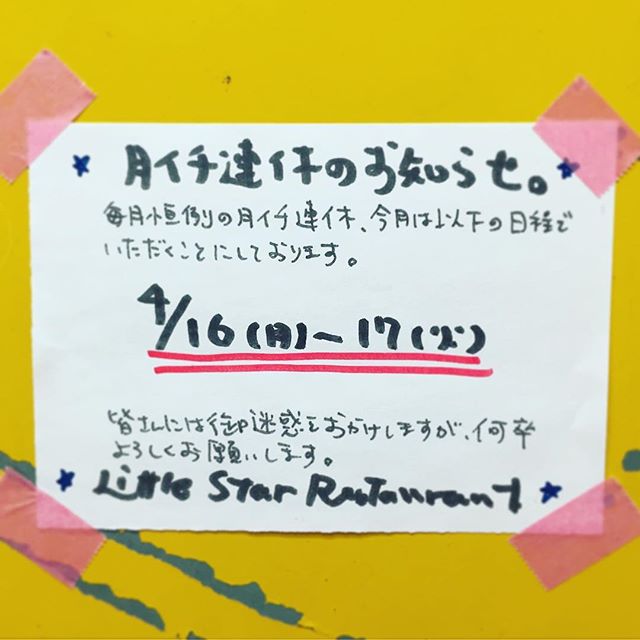 ★月イチ連休のお知らせ。★
毎月恒例の月イチ連休、今月は以下の日程で
いただくことにしております。
4/16(月)~17(火)
皆さんには御迷惑をおかけしますが、何卒
よろしくお願いします。
★Little Star Restaurant★